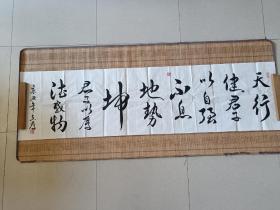 天行
健君子
以自强
不息
地势
坤
君子以厚
德载物